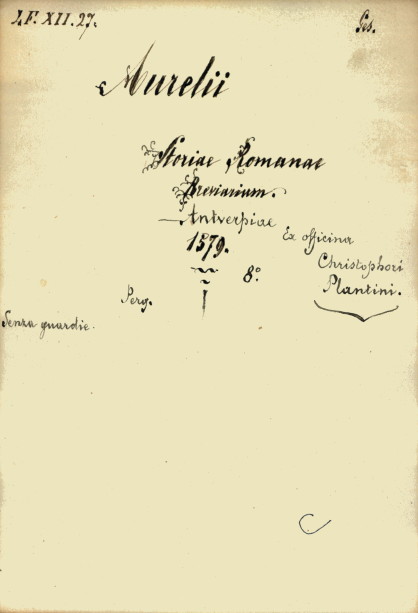 LF. XII. 27.
Ges.
Aurelii
Storiae Romanae
Breviarium.
Antverpiae
Ex officina
1579.
Christophori
8°.
Plantini.
Perg.
Senza guardie.
C